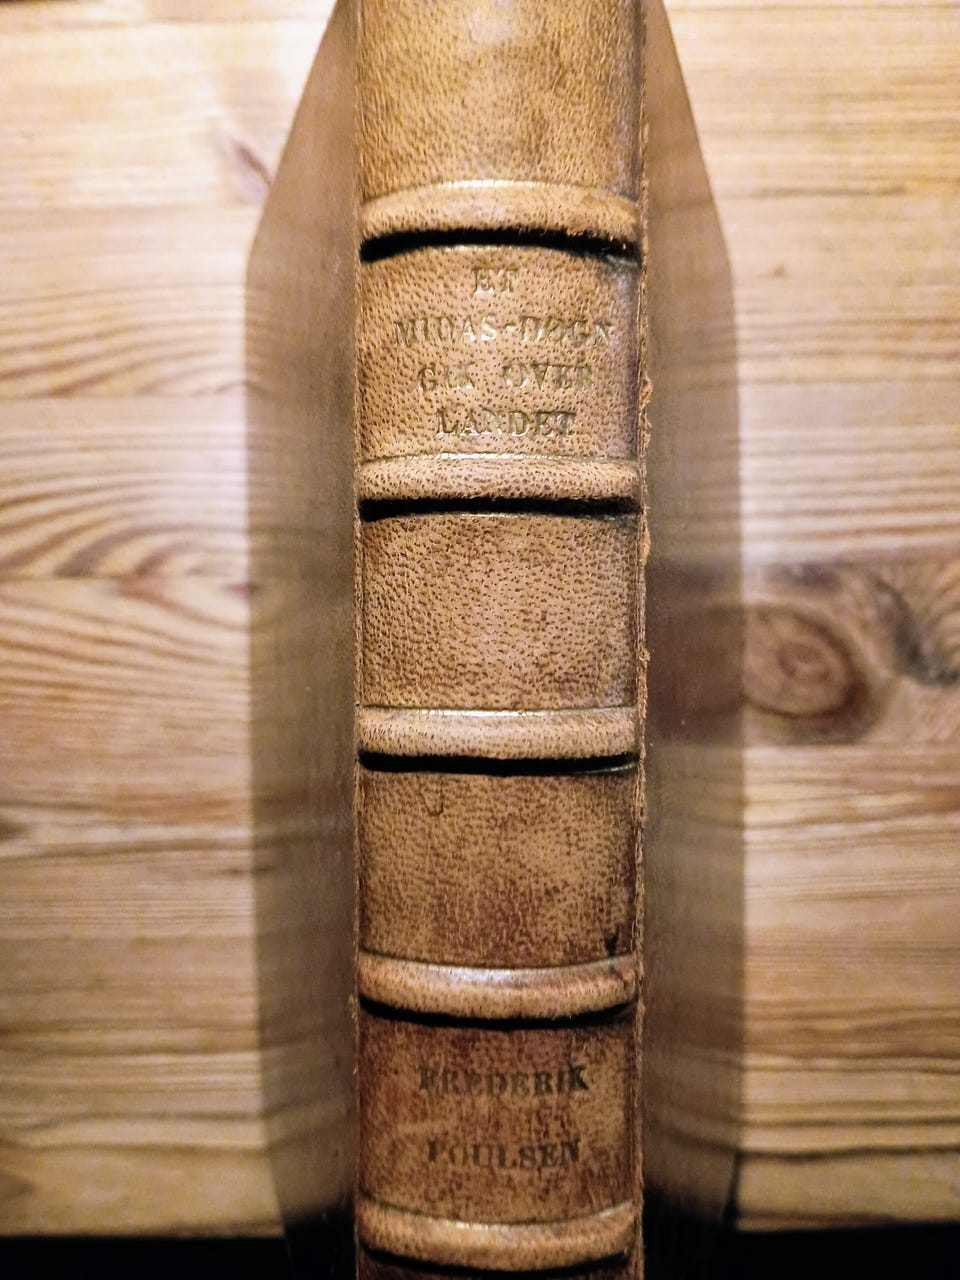 ET
MIDAS-DØGN
GIK OVER
LANDET
FREDERIK
POULSEN